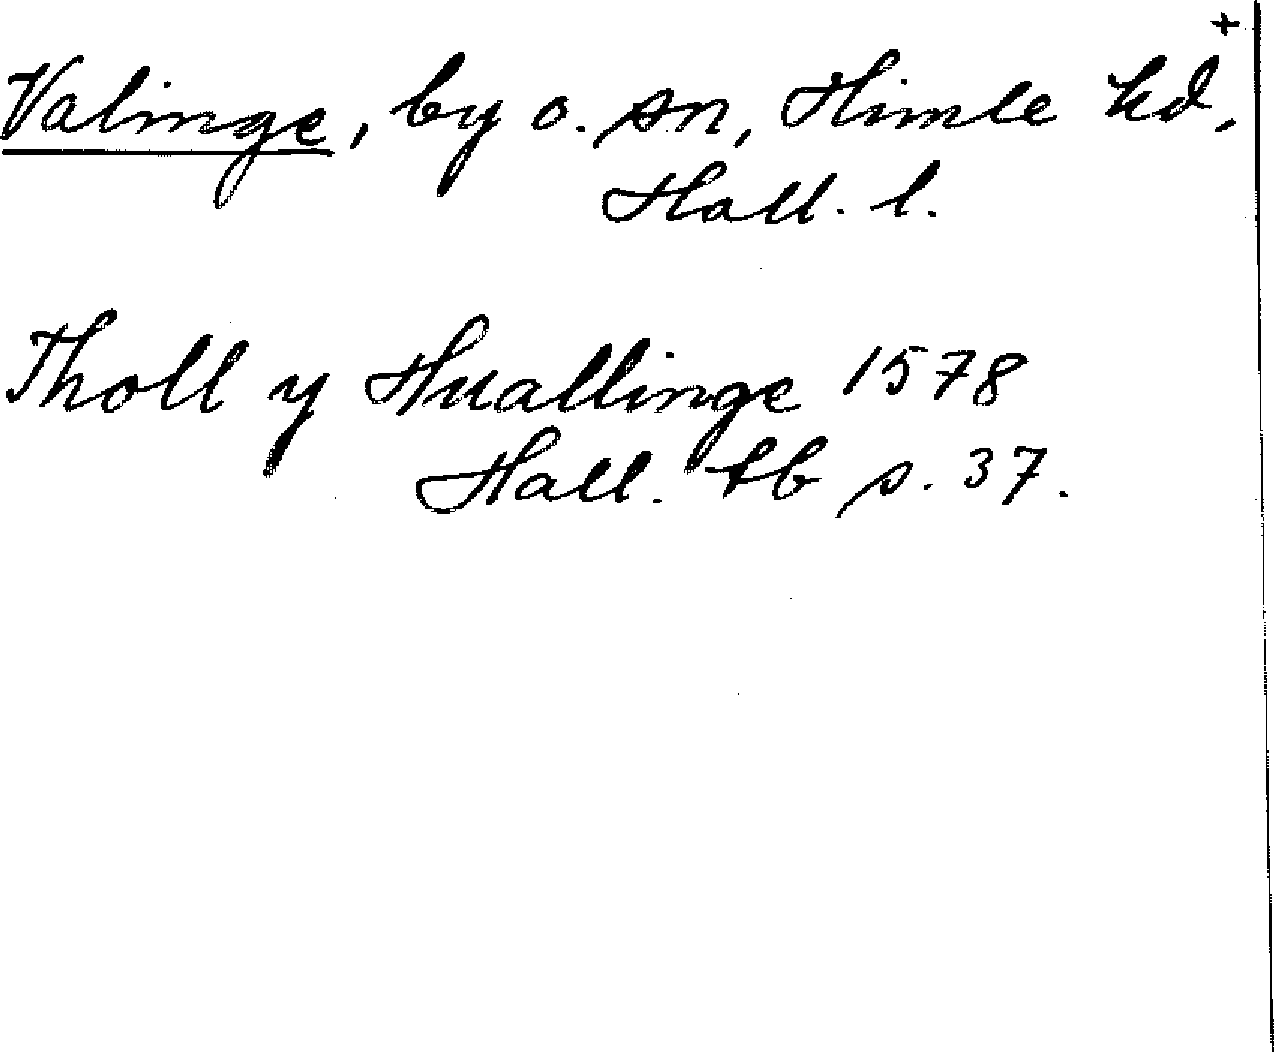 +
Valinge, by o. sn, Himle hd,
Hall. l.
Tholl y Huallinge 1578
Hall. tb s. 37.